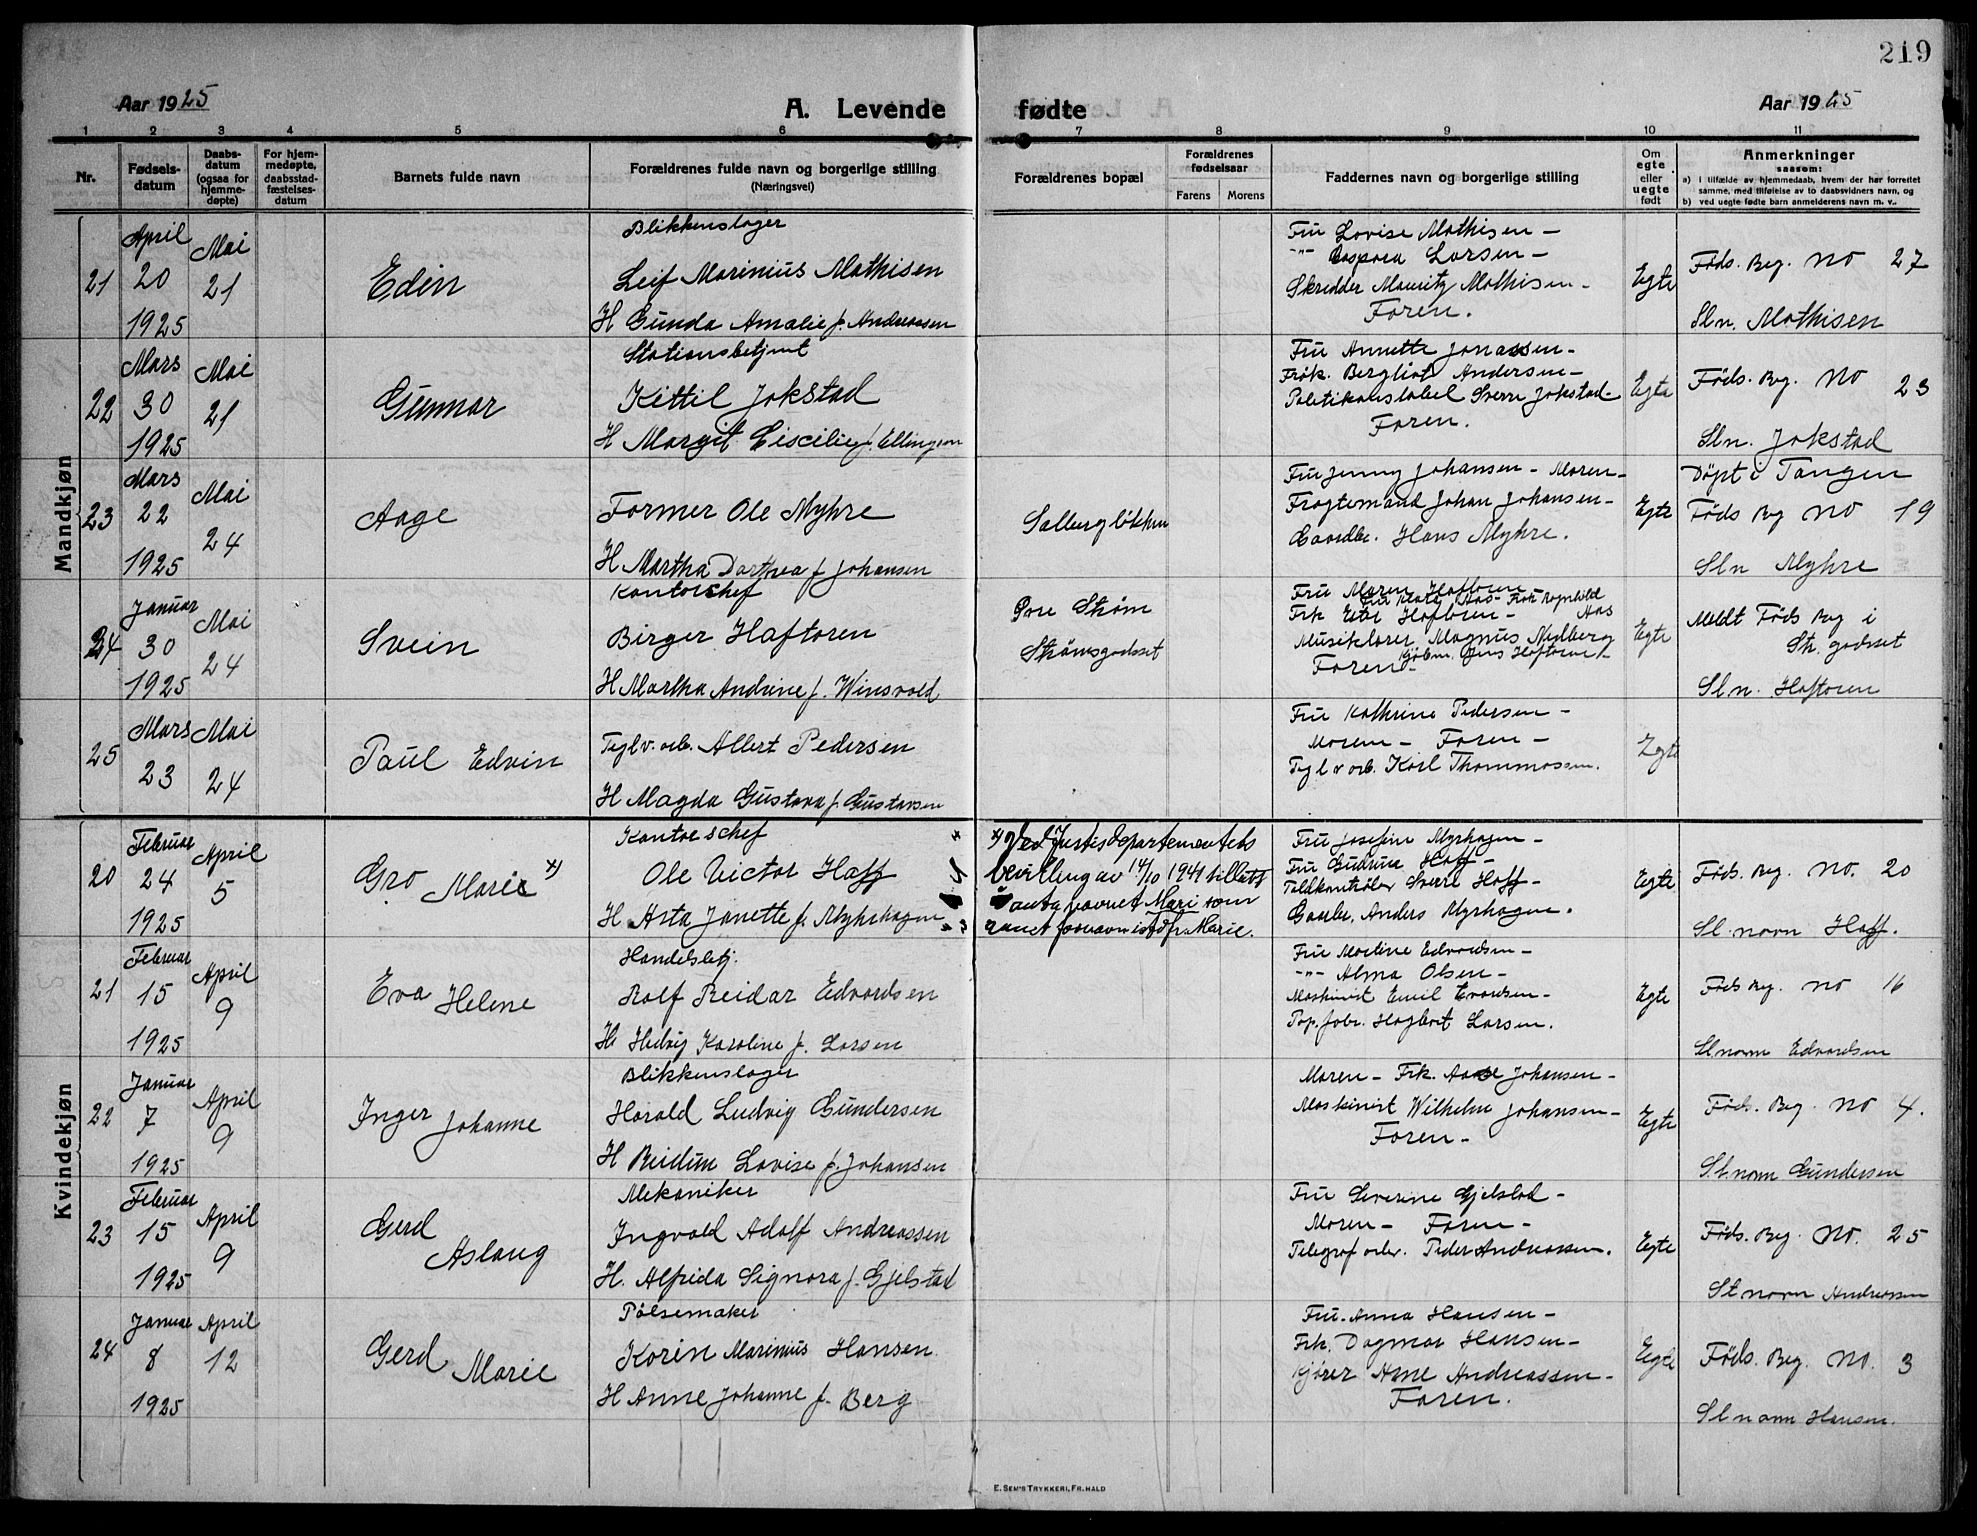 219
Aar 1925
A. Levende
fødte
Aar 1925
1 2 3 4 5 6 7 8 9 10 11
Nr.
Fødsels-
datum
Daabs-
datum
(ogsaa for
hjemme-
døpte)
For hjem-
medøpte,
daabsstad-
fæstelses-
datum
Barnets fulde navn
Forældrenes fulde navn og borgerlige stilling
(Næringsvei)
Forældrenes bopæl
Forældrenes
fødselsaar
Farens Morens
Faddernes navn og borgerlige stilling
Om
egte
eller
uegte
født
Anmerkninger
saasom:
a) i tilfælde av hjemmedaab, hvem der har forrettet
samme, med tilføielse av to daabsvidners navn, og
b) ved uegte fødte barn anmelderens navn m. v..
Mandkjøn
21
April
20
1925
Mai
21
Edin
Blikkenslager
Leif Marinius Mathisen
H Gunda Amalie f. Andreassen
Fru Lovise Mathisen –
–"– Larsen –
Skredder Mauritz Mathisen –
Faren.
Egte
Føds. Reg. No 27
Sln. Mathisen
22
Mars
30
1925
Mai
21
Gunnar
Stationsbetjent
Kittil Jokstad
H Margit Cicilie f. Ellingsen
Fru Annette Jonassen –
Frøk. Bergliot Andersen –
Politikonstabel Sverre Jokstad –
Faren.
Egte
Føds. Reg. No 23
Sln. Jokstad
23
Mars
22
1925
Mai
24
Aage
Former Ole Myhre
H Martha Dorthea f Johansen
Fru Jenny Johansen – Moren –
Fragtemand Johan Johansen –
Gaardbr. Hans Myhre.
Egte
Døpt i Tangen
Føds Reg No 19
Sln Myhre
24
Januar
30
1925
Mai
24
Svein
Kontorschef
Birger Haftoren
H Martha Andrine f. Winsvold
Pore Strøm
Strømsgodset
Fru Maren Haftoren –
Frk Haftoren –
Musiklærer Magnus Nylberg
Faren –
Egte
Meldt Føds Reg i
Str. godset
Sln. Haftoren
25
Mars
23
Mai
24
Paul Edvin
Teglv. arb. Albert Pedersen
H Magda Gustava f. Gustavsen
Fru Kathrine Pedersen –
Moren – Faren –
Tegl v arb. Karl Thommassen.
Egte
Kvindekjøn
20
Februar
24
1925
April
5
Gro Marie x)
Kontorschef
Ole Victor Haff
H. Asta Janette f. Myhrhagen
x) Ved Justisdepartementets
bevilling av 14/10 1941 tillatt
å anta navnet Mari som
annet fornavn istdf. Marie.
Fru Josefine Myrhagen –
Fru Gudrun Haff –
Toldkontrolør Sverre Haff –
Gaarbr. Anders Myrhagen.
Egte
Føds. Reg. No. 20
Sl. navn Haff.
21
Februar
15
1925
April
9
Eva Helene
Handelsbtj.
Rolf Reidar Edvardsen
H. Hedvig Karoline f. Larsen
Fru Martine Edvardsen –
–"– Alma Olsen –
Maskinist Emil Evardsen –
Pap. fabr. Hagbart Larsen.
Egte
Føds Reg. No 16
Sl navn Edvardsen
22
Januar
7
1925
April
9
Inger Johanne
Blikkenslager
Harald Ludvig Gundersen
H Reidun Lovise f. Johansen
Moren – Frk. Aase Johansen –
Maskinist Wilhelm Johansen –
Faren –
Egte
Føds. Reg. No 4.
Sl. navn Gundersen
23
Februar
15
1925
April
9
Gerd Aslaug
Mekaniker
Ingvald Adolf Andreassen
H. Alfrida Signora f. Gjelstad
Fru Severine Gjelstad –
Moren – Faren –
Telegraf arbr. Peder Andreassen.
Egte
Føds. Reg. No. 25
Sl navn Andreassen
24
Januar
8
1925
April
12
Gerd Marie
Pølsemaker
Karin Marinius Hansen
H Anne Johanne f. Berg
Fru. Anna Hansen –
Frk. Dagmar Hansen –
Kjører Arne Andreassen –
Faren.
Egte
Føds. Reg. No. 3
Sl navn Hansen.
E. SEM'S TRYKKERI, FR.HALD